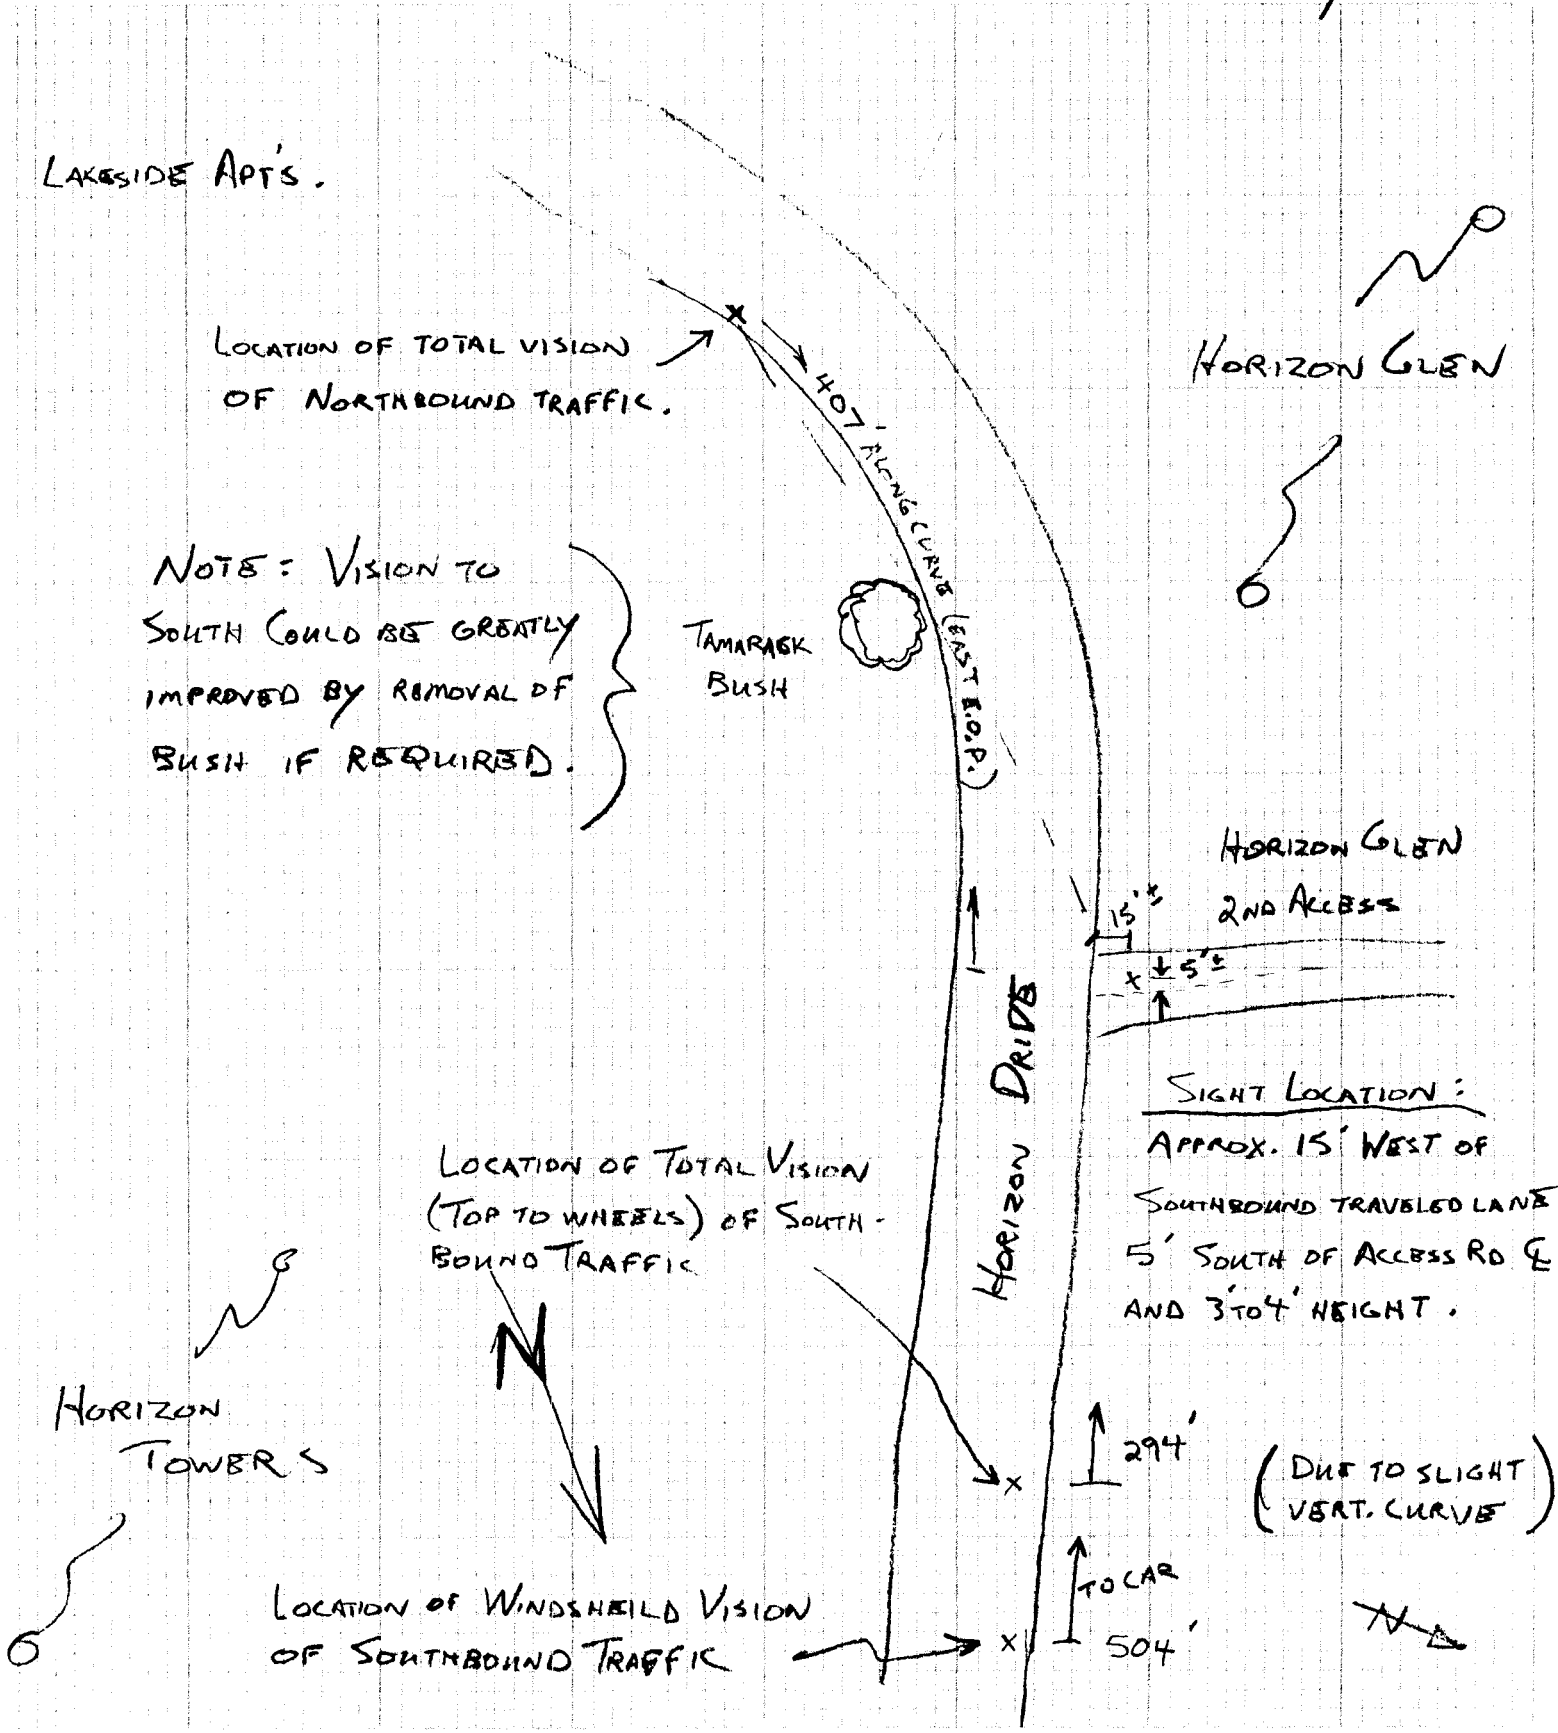 LAKESIDE APT'S.
LOCATION OF TOTAL VISION
OF NORTHBOUND TRAFFIC.
407' ALONG CURVE (EAST E.O.P.)
HORIZON GLEN
NOTE: VISION TO
SOUTH COULD BE GREATLY
IMPROVED BY REMOVAL OF
BUSH IF REQUIRED.
TAMARASK
BUSH
HORIZON GLEN
2ND ACCESS
15' ±
x 5' ±
HORIZON DRIDE
SIGHT LOCATION:
APPROX. 15' WEST OF
SOUTHBOUND TRAVELED LANE
5' SOUTH OF ACCESS RD ℄
AND 3' TO 4' HEIGHT.
LOCATION OF TOTAL VISION
(TOP TO WHEELS) OF SOUTH-
BOUND TRAFFIC
N
HORIZON
TOWERS
x
294'
(DUE TO SLIGHT
VERT. CURVE)
TO CAR
LOCATION OF WINDSHEILD VISION
OF SOUTHBOUND TRAFFIC
x
504'
N